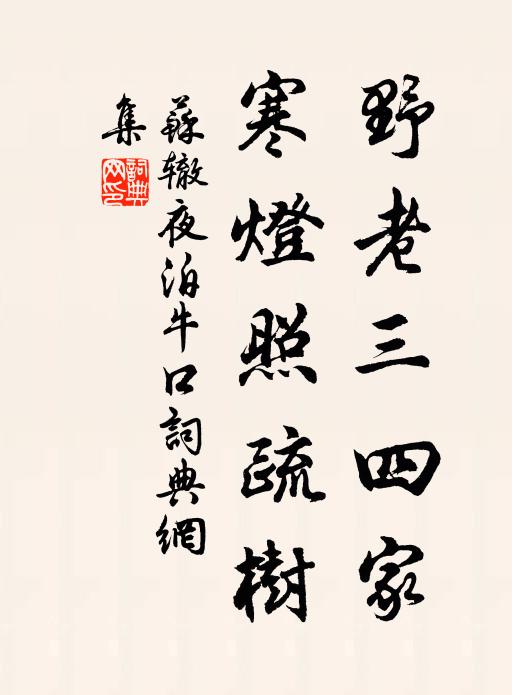 野老三四家
寒燈照疏樹
蘇辙夜泊牛口詞典網
集
詞典網印